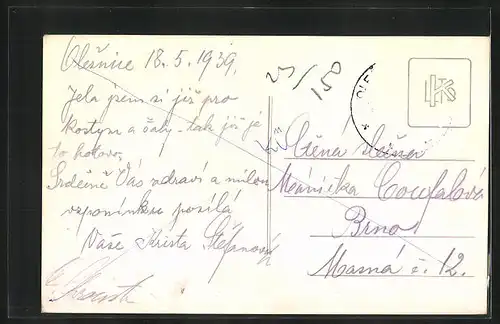 Olešnice 18.5.1939.
Jela jsem si již pro
kostym a šaty - tak již je
to hotovo.
Srdečně Vás zdraví a milou
vzpomínku posílá
Vaše Krista Štefanová
23/150
Ctěná slečna
Coufalová
Brno
Masná č. 12.